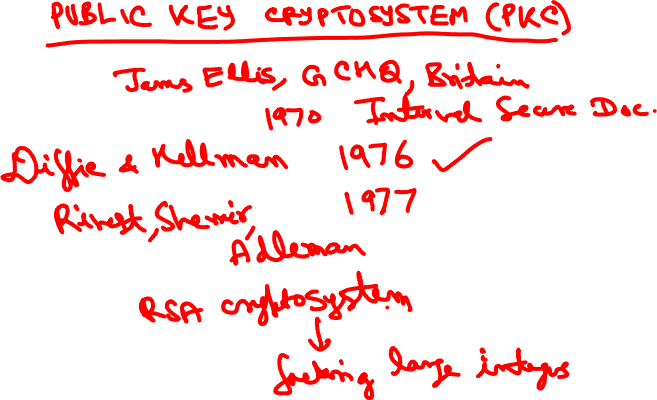 PUBLIC KEY CRYPTOSYSTEM (PKC)
Jams Ellis, GCHQ, Britain
1970 Internal Secure Doc.
Diffie & Hellman 1976 ✓
Rivest, Shamir, 1977
Adleman
RSA cryptosystem
↓
factoring large integers